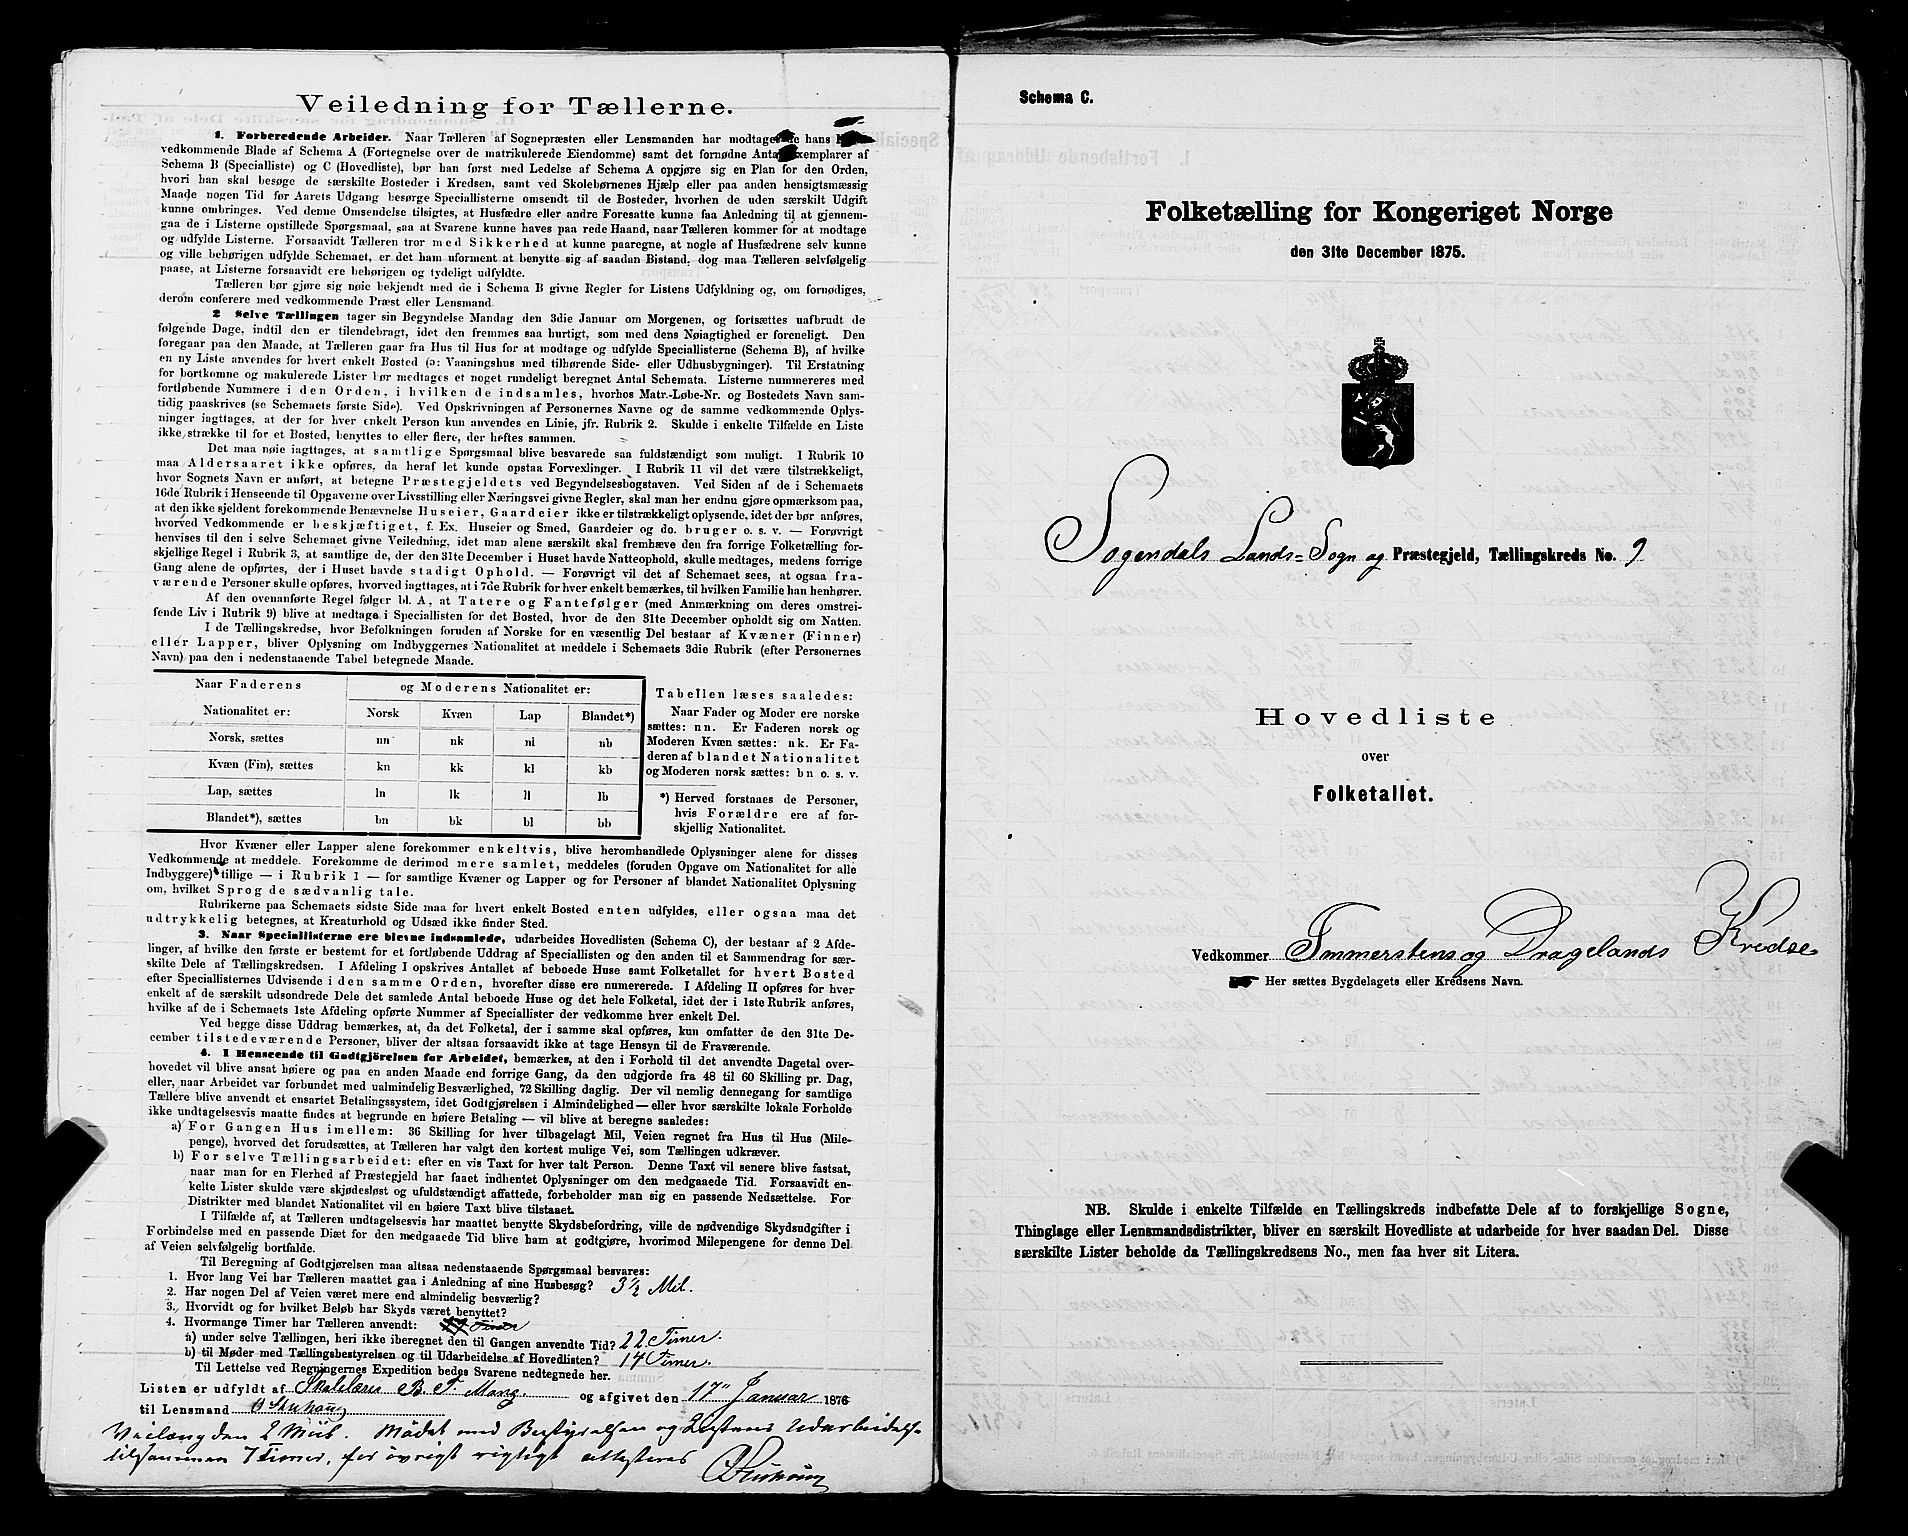 Veiledning for Tællerne.
1. Forberedende Arbeider. Naar Tælleren af Sognepræsten eller Lensmanden har modtaget de hans
vedkommende Blade af Schema A (Fortegnelse over de matrikulerede Eiendomme) samt det fornødne Antal Exemplarer af
Schema B (Specialliste) og C (Hovedliste), bør han først med Ledelse af Schema A opgjøre sig en Plan for den Orden,
hvori han skal besøge de særskilte Bosteder i Kredsen, samt ved Skolebørnenes Hjælp eller paa anden hensigtsmæssig
Maade nogen Tid før Aarets Udgang besørge Speciallisterne omsendt til de Bosteder, hvorhen de uden særskilt Udgift
kunne ombringes. Ved denne Omsendelse tilsigtes, at Husfædre eller andre Foresatte kunne faa Anledning til at gjennem-
gaa de i Listerne opstillede Spørgsmaal, saa at Svarene kunne haves paa rede Haand, naar Tælleren kommer for at modtage
og udfylde Listerne. Forsaavidt Tælleren tror med Sikkerhed at kunne paaregne, at nogle af Husfædrene selv kunne
og ville behørigen udfylde Schemaet, er det ham uforment at benytte sig af saadan Bistand, dog maa Tælleren selvfølgelig
paase, at Listerne forsaavidt ere behørigen og tydeligt udfyldte.
Tælleren bør gjøre sig nøie bekjendt med de i Schema B givne Regler for Listens Udfyldning og, om fornødiges,
derom conferere med vedkommende Præst eller Lensmand.
2 Selve Tællingen tager sin Begyndelse Mandag den 3die Januar om Morgenen, og fortsættes uafbrudt de
følgende Dage, indtil den er tilendebragt, idet den fremmes saa hurtigt, som med dens Nøiagtighed er foreneligt. Den
foregaar paa den Maade, at Tælleren gaar fra Hus til Hus for at modtage og udfylde Speciallisterne (Schema B), af hvilke
en ny Liste anvendes for hvert enkelt Bosted (ɔ: Vaaningshus med tilhørende Side- eller Udhusbygninger). Til Erstatning
for bortkomne og makulerede Lister bør medtages et noget rundeligt beregnet Antal Schemata. Listerne nummereres med
fortløbende Nummere i den Orden, i hvilken de indsamles, hvorhos Matr.-Løbe-Nr. og Bostedets Navn sam-
tidig paaskrives (se Schemaets første Side). Ved Opskrivningen af Personernes Navne og de samme vedkommende Oplys-
ninger iagttages, at der for hver enkelt Person kun anvendes en Linie, jfr. Rubrik 2. Skulde i enkelte Tilfælde en Liste
ikke strække til for et Bosted, benyttes to eller flere, der heftes sammen.
Det maa nøie iagttages, at samtlige Spørgsmaal blive besvarede saa fuldstændigt som muligt. I Rubrik 10
maa Aldersaaret ikke opføres, da heraf let kunde opstaa Forvexlinger. I Rubrik 11 vil det være tilstrækkeligt,
hvor Sognets Navn er anført, at betegne Præstegjeldets ved Begyndelsesbogstaven. Ved Siden af de i Schemaets
16de Rubrik i Henseende til Opgaverne over Livsstilling eller Næringsvei givne Regler, skal man her endnu gjøre opmærksom paa,
at den ikke sjeldent forekommende Benævnelse Huseier, Gaardeier ikke er tilstrækkeligt oplysende, idet der bør anføres,
hvorved Vedkommende er beskjæftiget, f. Ex. Huseier og Smed, Gaardeier og do. bruger o. s. v. — Forøvrigt
henvises til den i selve Schemaet givne Veiledning, idet man alene særskilt skal fremhæve den fra forrige Folketælling for-
skjellige Regel i Rubrik 3, at samtlige de, der den 31te December i Huset havde Natteophold, skulle medtages, medens forrige
Gang alene de opførtes, der i Huset havde stadigt Ophold. — Forøvrigt vil det af Schemaet sees, at ogsaa fra-
værende Personer skulle opføres, hvorved iagttages, at i 7de Rubrik for hver enkelt bemærkes, til hvilken Familie han henhører.
Af den ovenanførte Regel følger bl. A, at Tatere og Fantefølger (med Anmærkning om deres omstrei-
fende Liv i Rubrik 9) blive at medtage i Speciallisten for det Bosted, hvor de den 31te December opholdt sig om Natten.
I de Tællingskredse, hvor Befolkningen foruden af Norske for en væsentlig Del bestaar af Kvæner (Finner)
eller Lapper, bliver Oplysning om Indbyggernes Nationalitet at meddele i Schemaets 3die Rubrik (efter Personernes
Navn) paa den i nedenstaaende Tabel betegnede Maade.
Naar Faderens og Moderens Nationalitet er:
Nationalitet er: Norsk Kvæn Lap Blandet*)
Norsk, sættes nn nk nl nb
Kvæn (Fin), sættes kn kk kl kb
Lap, sættes ln lk ll lb
Blandet*), sættes bn bk bl bb
Tabellen læses saaledes:
Naar Fader og Moder ere norske
sættes: nn. Er Faderen norsk og
Moderen Kvæn sættes: nk. Er Fa-
deren af blandet Nationalitet
og Moderen norsk sættes: bn o. s. v.
*) Herved forstaaes de Personer,
hvis Forældre ere af for-
skjellig Nationalitet.
Hvor Kvæner eller Lapper alene forekommer enkeltvis, blive heromhandlede Oplysninger alene for disses
Vedkommende at meddele. Forekomme de derimod mere samlet, meddeles (foruden Opgave om Nationalitet for alle
Indbyggere) tillige — i Rubrik 1 — for samtlige Kvæner og Lapper og for Personer af blandet Nationalitet Oplysning
om, hvilket Sprog de sædvanlig tale.
Rubrikerne paa Schemaets sidste Side maa for hvert enkelt Bosted enten udfyldes, eller ogsaa maa det
udtrykkelig betegnes, at Kreaturhold og Udsæd ikke finder Sted.
3. Naar Speciallisterne ere blevne indsamlede, udarbeides Hovedlisten (Schema C), der bestaar af 2 Afde-
linger, af hvilke den første er bestemt for et fortløbende Uddrag af Speciallisten og den anden til et Sammendrag for sær-
skilte Dele af Tællingskredsen. I Afdeling I opskrives Antallet af beboede Huse samt Folketallet for hvert Bosted
efter Speciallisternes Udvisende i den samme Orden, hvorefter disse ere numererede. I Afdeling II opføres for hver
enkelt af de særskilt udsondrede Dele det samlede Antal beboede Huse og det hele Folketal, idet der i 1ste Rubrik anføres,
hvilke af de i Schemaets 1ste Afdeling opførte Nummer af Speciallister der vedkomme hver enkelt Del.
Ved begge disse Uddrag bemærkes, at, da det Folketal, der i samme skal opføres, kun omfatter de den 31te De-
cember tilstedeværende Personer, bliver der altsaa forsaavidt ikke at tage Hensyn til de Fraværende.
4. I Henseende til Godtgjörelsen for Arbeidet, bemærkes, at den i Forhold til det anvendte Dagetal over-
hovedet vil blive ansat høiere og paa en anden Maade end forrige Gang, da den udgjorde fra 48 til 60 Skilling pr. Dag,
eller, naar Arbeidet var forbundet med ualmindelig Besværlighed, 72 Skilling daglig. Der vil nemlig dennegang for samtlige
Tællere blive anvendt et ensartet Betalingssystem, idet Godtgjørelsen i Almindelighed — eller hvor særskilte lokale Forholde
ikke undtagelsesvis maatte findes at begrunde en høiere Betaling — vil blive at beregne saaledes:
a) For Gangen Hus imellem: 36 Skilling for hver tilbagelagt Mil, Veien regnet fra Hus til Hus (Mile-
penge), hvorved det forudsættes, at Tælleren har valgt den kortest mulige Vei, som Tællingen udkræver.
b) For selve Tællingsarbeidet: efter en vis Taxt for hver talt Person. Denne Taxt vil senere blive fastsat,
naar man for en Flerhed af Præstegjeld har faaet indhentet Oplysninger om den medgaaede Tid. Forsaavidt en-
kelte Lister skulde være skjødesløst og ufuldstændigt affattede, forbeholder man sig en passende Nedsættelse. For
Distrikter med blandet Nationalitet vil en høiere Taxt blive tilstaaet.
I Tilfælde af, at Tælleren undtagelsesvis har maattet benytte Skydsbefordring, ville de nødvendige Skydsudgifter i
Forbindelse med en passende Diæt for den medgaaede Tid blive ham at godtgjøre, hvorimod Milepengene for denne Del
af Veien selvfølgelig bortfalde.
Til Beregning af Godtgjørelsen maa altsaa nedenstaaende Spørgsmaal besvares:
1. Hvor lang Vei har Tælleren maattet gaa i Anledning af sine Husbesøg? 3½ Mil.
2. Har nogen Del af Veien været mere end almindelig besværlig?
3. Hvorvidt og for hvilket Beløb har Skyds været benyttet?
4. Hvormange Timer har Tælleren anvendt:
a) under selve Tællingen, heri ikke iberegnet den til Gangen anvendte Tid? 22 Timer.
b) til Møder med Tællingsbestyrelsen og til Udarbeidelse af Hovedlisten? 14 Timer.
Til Lettelse ved Regningernes Expedition bedes Svarene nedtegnede her.
Listen er udfyldt af Skolelærer B. T. Mong. og afgivet den 17" Januar 1876
til Lensmand
Veilængden 2 Miil. Mødet med Bestyrelsen og Listens Udarbeidelse
tilsammen 7 Timer, for övrigt rigtigt attesteres
Schema C.
Folketælling for Kongeriget Norge
den 31te December 1875.
Sogendals Lands- Sogn og Præstegjeld, Tællingskreds No. 9
Hovedliste
over
Folketallet.
Vedkommer Immerstens og Dragelands Kredse
Her sættes Bygdelagets eller Kredsens Navn.
NB. Skulde i enkelte Tilfælde en Tællingskreds indbefatte Dele af to forskjellige Sogne,
Thinglage eller Lensmandsdistrikter, bliver en særskilt Hovedliste at udarbeide for hver saadan Del. Disse
særskilte Lister beholde da Tællingskredsens No., men faa hver sit Litera.